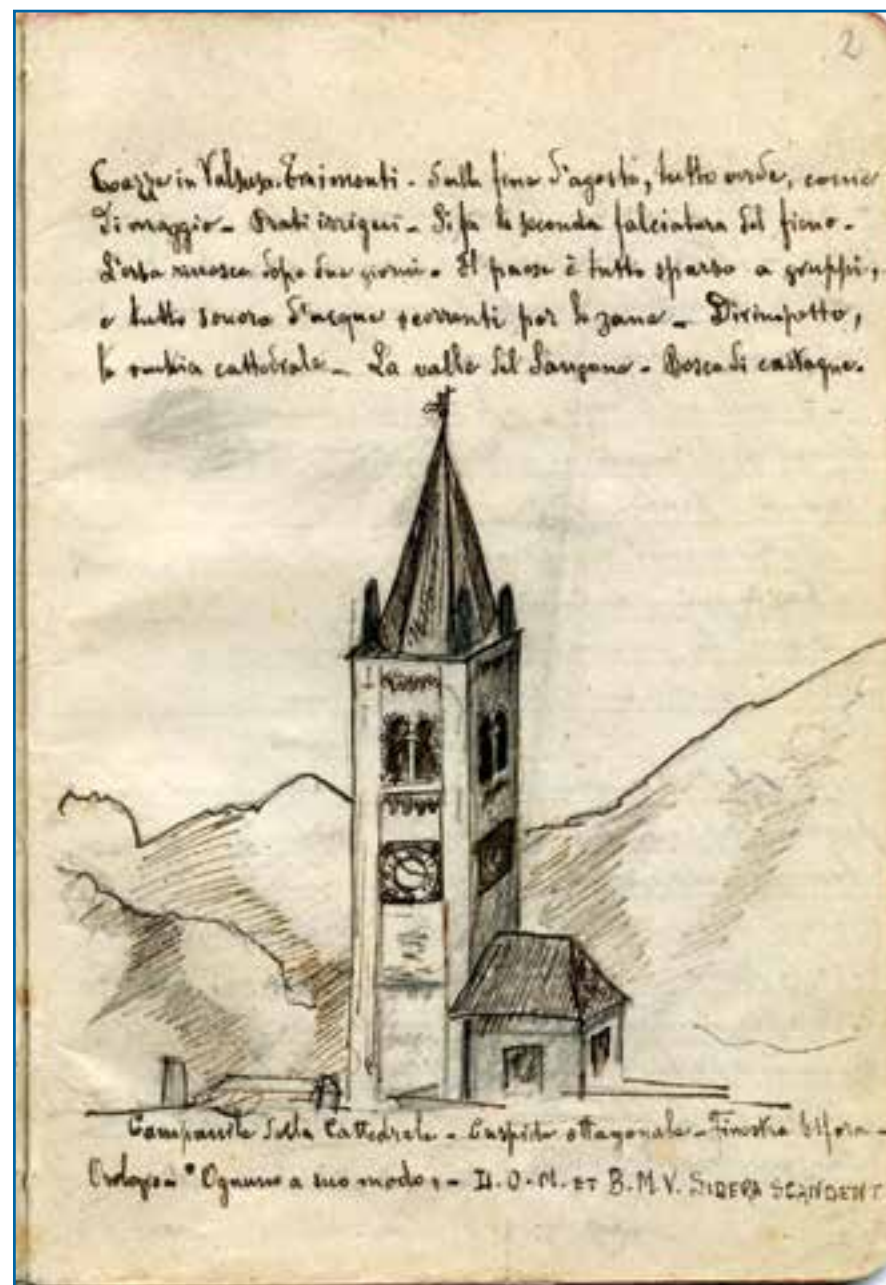 2
Coazze in Valsusa. Traimonti - Sulla fine d'agosto, tutto verde, come
di maggio - Prati irrigui - Si fa la seconda falciatura del fieno -
L'erba rinasce dopo due giorni - Il paese è tutto sparso a gruppi,
e tutto sonoro d'acque scorrenti per le zane - Dirimpetto,
la vecchia cattedrale - La valle del Sangone - Bosco di castagne.
Campanile della Cattedrale - Cuspide ottagonale - Finestra bifora -
Orologio - "Ognuno a suo modo" - D.O.M. ET B.M.V. SIDERA SCANDENT